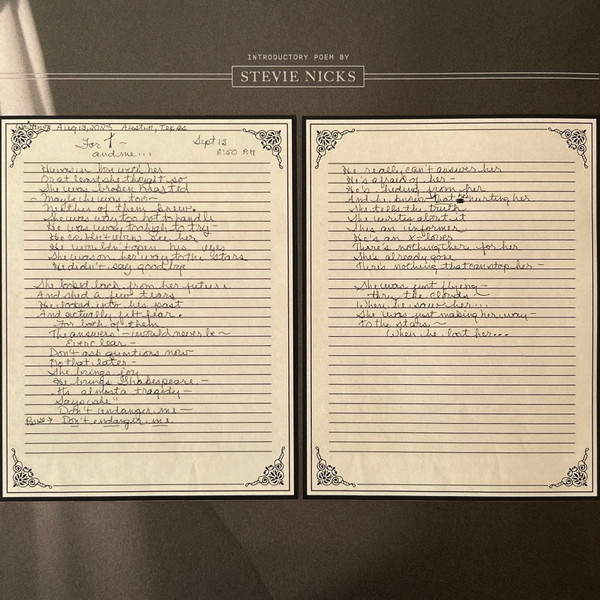 INTRODUCTORY POEM BY
STEVIE NICKS
Written Aug 13, 2023 Austin, Texas
For T ~
and me...!
Sept 13
8:50 PM
He was in love with her
Or at least she thought so
She was broken hearted
~ Maybe he was too ~
Neither of them knew
She was way too hot to handle
He was way too high to try ~
He couldn't even see her
He wouldn't open his eyes
She was on her way to the stars
He didn't say goodbye
She looked back from her future
And shed a few tears
He looked into his past
And actually felt fear.
For both of them
The answers - would never be ~
Ever clear -
Don't ask questions now
Do that later -
She brings joy
He brings Shakespeare -
It's almost a tragedy -
Says she"
Don't endanger me -
Don't endanger me.
He really can't answer her
He's afraid of her -
He's hiding from her
And he knows that he's hurting her
She tells the truth
She writes about it
She's an informer
He's an x-lover
There's nothing there for her
She's already gone
There's nothing that can stop her -
She was just flying -
thru the clouds ~
When he saw her...
She was just making her way -
to the stars ~
When he lost her...